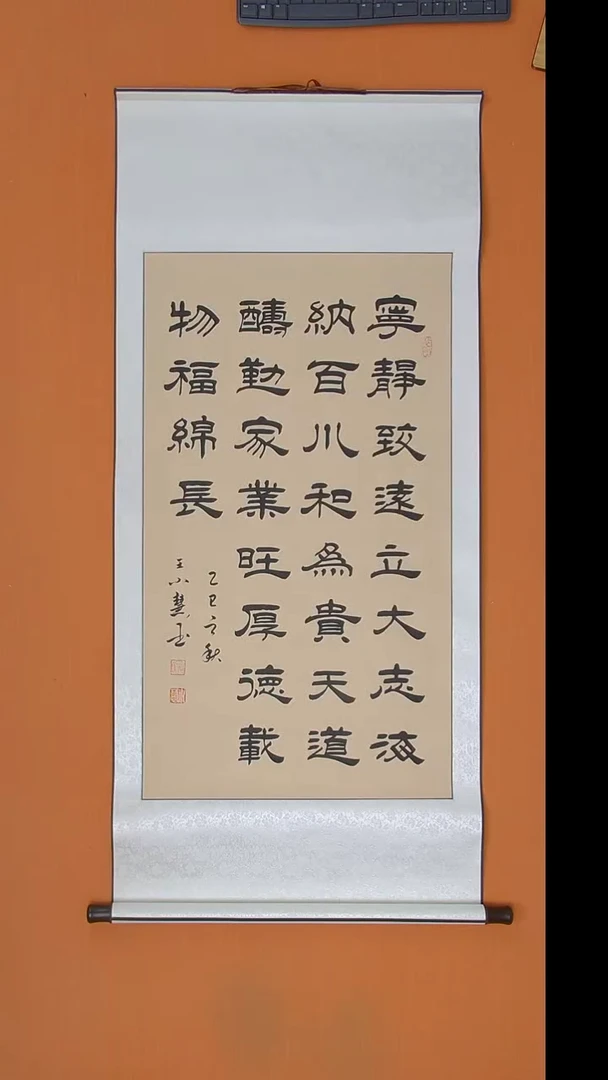 寧靜致遠立大志海
納百川和為貴天道
酬勤家業旺厚德載
物福綿長
乙巳之秋
王小慧玉